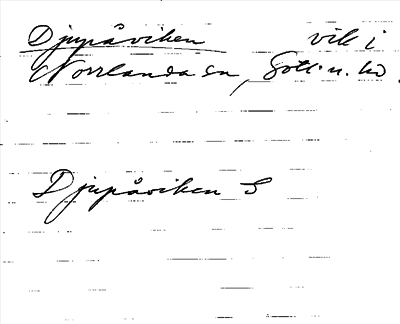 Djupåviken vik i
Norrlanda sn, Gotl. n. hd
Djupåviken S